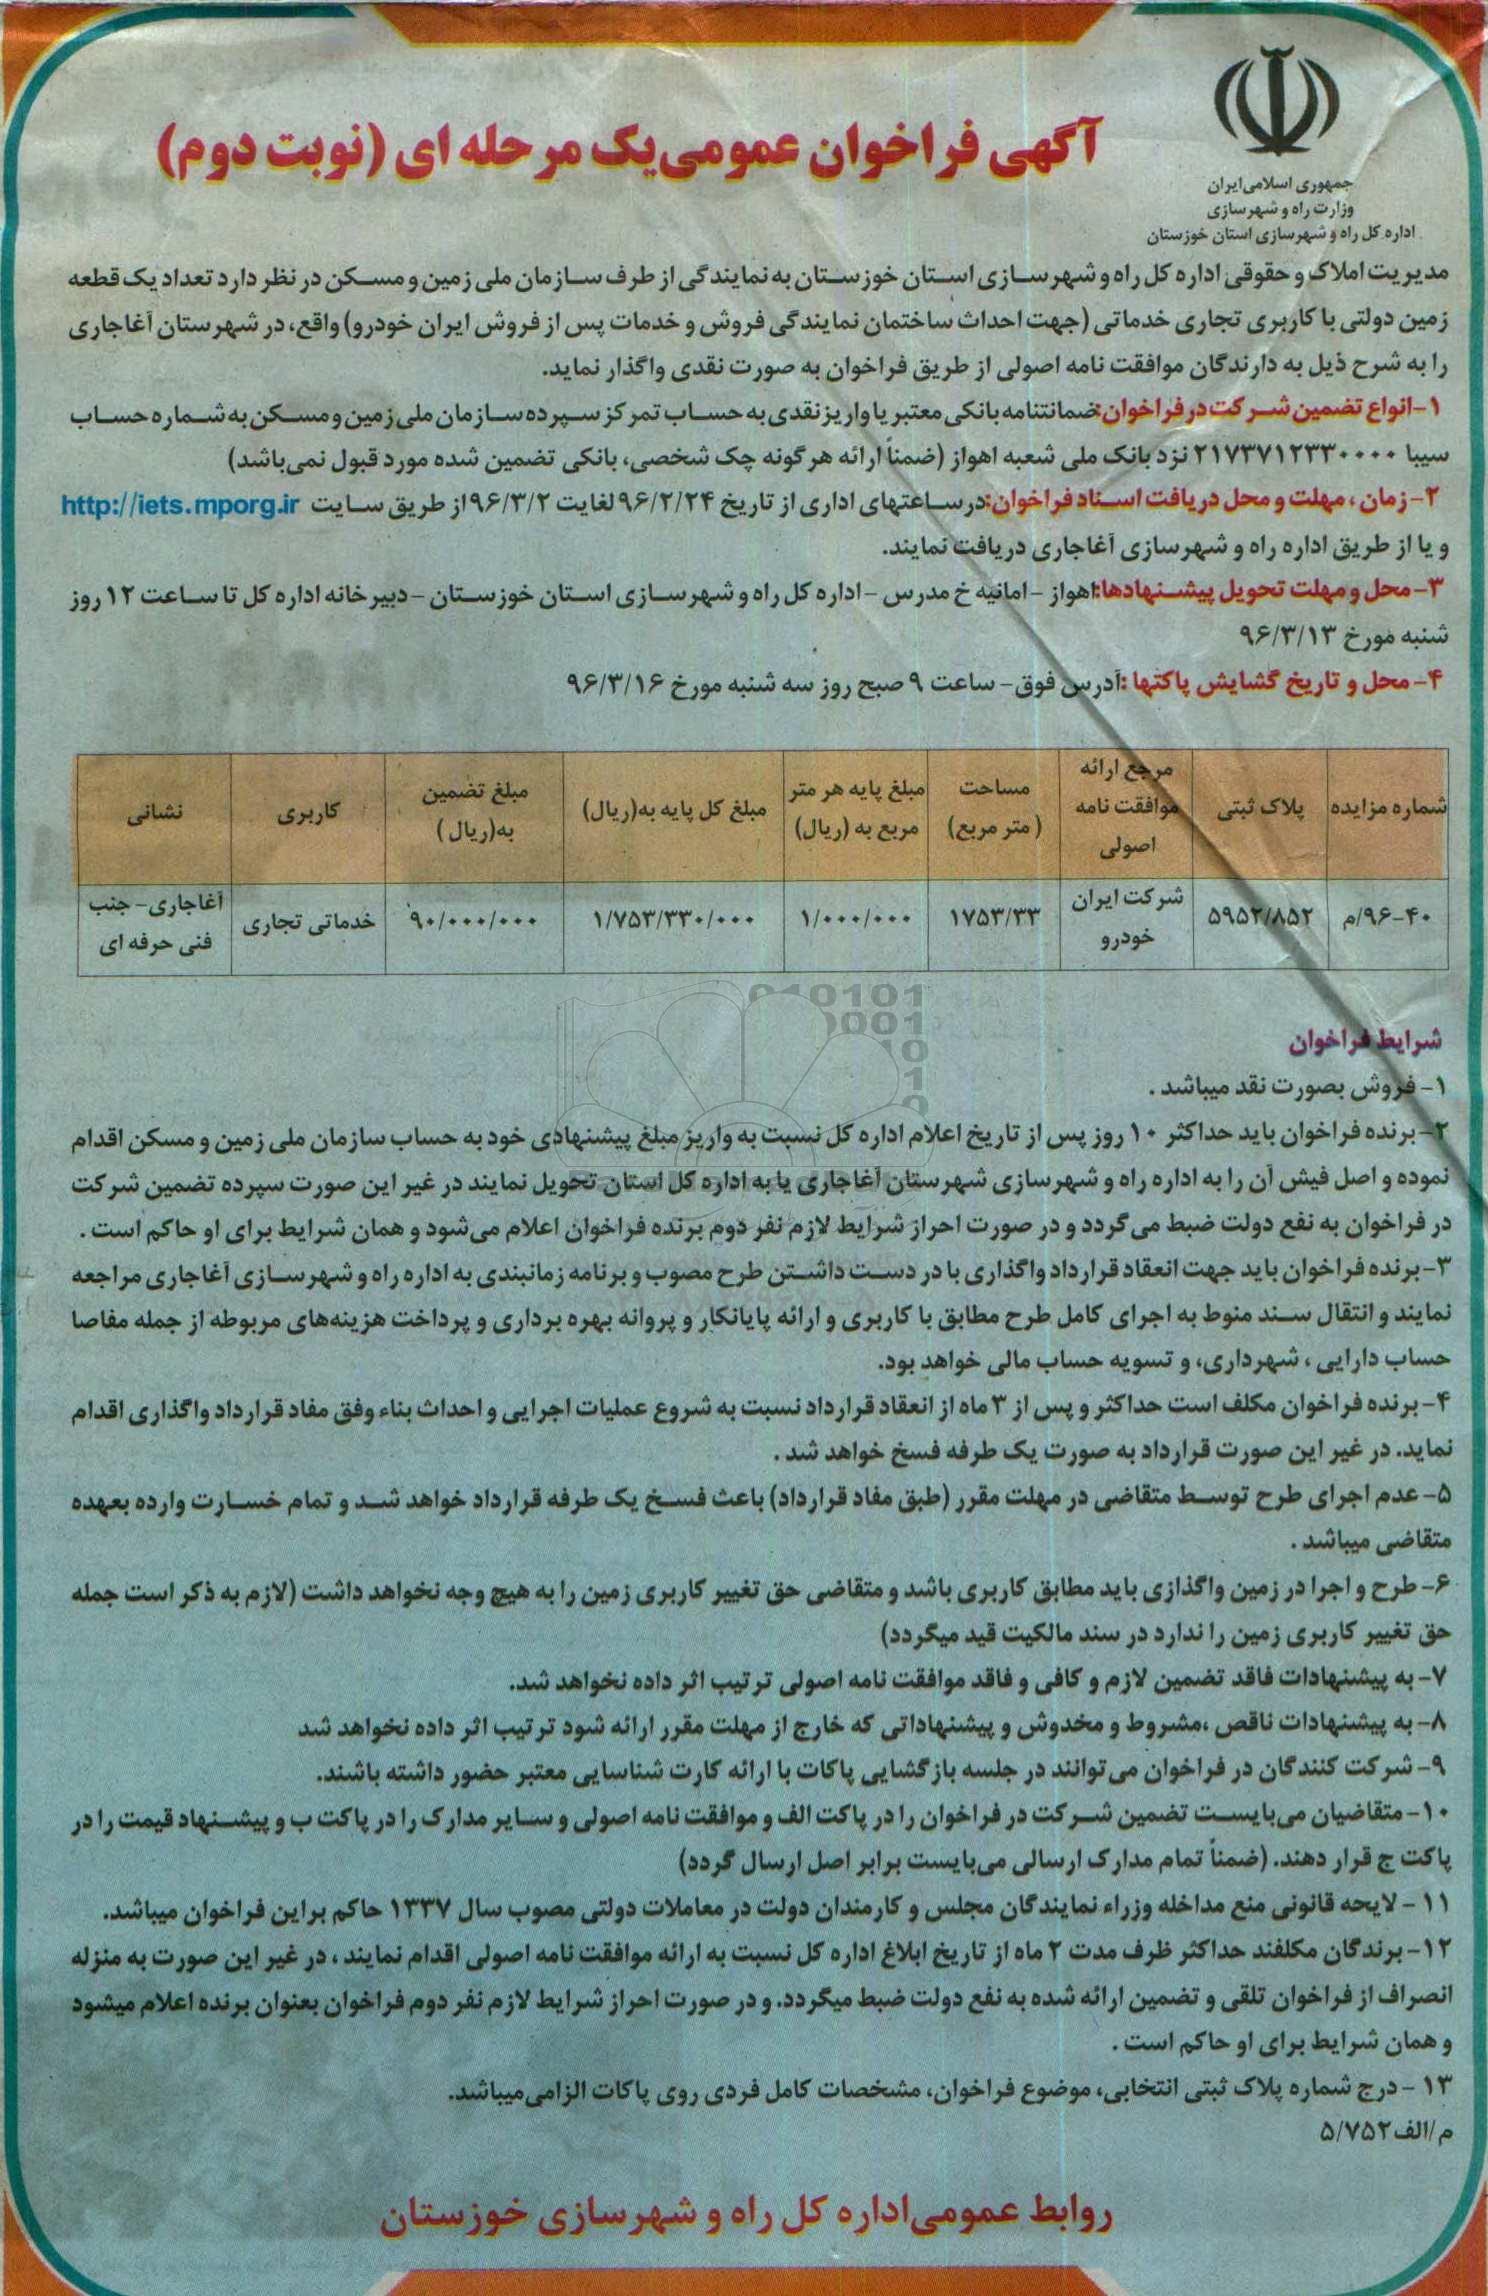 جمهوری اسلامی ایران
وزارت راه و شهرسازی
اداره کل راه و شهرسازی استان خوزستان
آگهی فراخوان عمومی یک مرحله ای (نوبت دوم)
مدیریت املاک و حقوقی اداره کل راه و شهرسازی استان خوزستان به نمایندگی از طرف سازمان ملی زمین و مسکن در نظر دارد تعداد یک قطعه
زمین دولتی با کاربری تجاری خدماتی (جهت احداث ساختمان نمایندگی فروش و خدمات پس از فروش ایران خودرو) واقع، در شهرستان آغاجاری
را به شرح ذیل به دارندگان موافقت نامه اصولی از طریق فراخوان به صورت نقدی واگذار نماید.
۱-انواع تضمین شرکت در فراخوان:ضمانتنامه بانکی معتبر یا واریز نقدی به حساب تمرکز سپرده سازمان ملی زمین و مسکن به شماره حساب
سیبا ۲۱۷۳۷۱۲۳۳۰۰۰۰ نزد بانک ملی شعبه اهواز (ضمناً ارائه هرگونه چک شخصی، بانکی تضمین شده مورد قبول نمی‌باشد)
۲-زمان ، مهلت و محل دریافت اسناد فراخوان:در ساعتهای اداری از تاریخ ۹۶/۲/۲۴ لغایت ۹۶/۳/۲ از طریق سایت http://iets.mporg.ir
و یا از طریق اداره راه و شهرسازی آغاجاری دریافت نمایند.
۳-محل و مهلت تحویل پیشنهادها:اهواز -امانیه خ مدرس -اداره کل راه و شهرسازی استان خوزستان -دبیرخانه اداره کل تا ساعت ۱۲ روز
شنبه مورخ ۹۶/۳/۱۳
۴-محل و تاریخ گشایش پاکتها :آدرس فوق- ساعت ۹ صبح روز سه شنبه مورخ ۹۶/۳/۱۶
شماره مزایده | پلاک ثبتی | مرجع ارائه موافقت نامه اصولی | مساحت (متر مربع) | مبلغ پایه هر متر مربع به (ریال) | مبلغ کل پایه به(ریال) | مبلغ تضمین به(ریال) | کاربری | نشانی
۹۶-۴۰/م | ۵۹۵۲/۸۵۲ | شرکت ایران خودرو | ۱۷۵۳/۳۳ | ۱/۰۰۰/۰۰۰ | ۱/۷۵۳/۳۳۰/۰۰۰ | ۹۰/۰۰۰/۰۰۰ | خدماتی تجاری | آغاجاری- جنب فنی حرفه ای
شرایط فراخوان
۱- فروش بصورت نقد میباشد .
۲-برنده فراخوان باید حداکثر ۱۰ روز پس از تاریخ اعلام اداره کل نسبت به واریز مبلغ پیشنهادی خود به حساب سازمان ملی زمین و مسکن اقدام
نموده و اصل فیش آن را به اداره راه و شهرسازی شهرستان آغاجاری یا به اداره کل استان تحویل نمایند در غیر این صورت سپرده تضمین شرکت
در فراخوان به نفع دولت ضبط می‌گردد و در صورت احراز شرایط لازم نفر دوم برنده فراخوان اعلام می‌شود و همان شرایط برای او حاکم است .
۳-برنده فراخوان باید جهت انعقاد قرارداد واگذاری با در دست داشتن طرح مصوب و برنامه زمانبندی به اداره راه و شهرسازی آغاجاری مراجعه
نمایند و انتقال سند منوط به اجرای کامل طرح مطابق با کاربری و ارائه پایانکار و پروانه بهره برداری و پرداخت هزینه‌های مربوطه از جمله مفاصا
حساب دارایی ، شهرداری، و تسویه حساب مالی خواهد بود.
۴-برنده فراخوان مکلف است حداکثر و پس از ۳ ماه از انعقاد قرارداد نسبت به شروع عملیات اجرایی و احداث بناء وفق مفاد قرارداد واگذاری اقدام
نماید. در غیر این صورت قرارداد به صورت یک طرفه فسخ خواهد شد .
۵-عدم اجرای طرح توسط متقاضی در مهلت مقرر (طبق مفاد قرارداد) باعث فسخ یک طرفه قرارداد خواهد شد و تمام خسارت وارده بعهده
متقاضی میباشد .
۶-طرح و اجرا در زمین واگذازی باید مطابق کاربری باشد و متقاضی حق تغییر کاربری زمین را به هیچ وجه نخواهد داشت (لازم به ذکر است جمله
حق تغییر کاربری زمین را ندارد در سند مالکیت قید میگردد)
۷-به پیشنهادات فاقد تضمین لازم و کافی و فاقد موافقت نامه اصولی ترتیب اثر داده نخواهد شد.
۸-به پیشنهادات ناقص ،مشروط و مخدوش و پیشنهاداتی که خارج از مهلت مقرر ارائه شود ترتیب اثر داده نخواهد شد
۹-شرکت کنندگان در فراخوان می‌توانند در جلسه بازگشایی پاکات با ارائه کارت شناسایی معتبر حضور داشته باشند.
۱۰-متقاضیان می‌بایست تضمین شرکت در فراخوان را در پاکت الف و موافقت نامه اصولی و سایر مدارک را در پاکت ب و پیشنهاد قیمت را در
پاکت ج قرار دهند. (ضمناً تمام مدارک ارسالی می‌بایست برابر اصل ارسال گردد)
۱۱ - لایحه قانونی منع مداخله وزراء نمایندگان مجلس و کارمندان دولت در معاملات دولتی مصوب سال ۱۳۳۷ حاکم براین فراخوان میباشد.
۱۲-برندگان مکلفند حداکثر ظرف مدت ۲ ماه از تاریخ ابلاغ اداره کل نسبت به ارائه موافقت نامه اصولی اقدام نمایند ، در غیر این صورت به منزله
انصراف از فراخوان تلقی و تضمین ارائه شده به نفع دولت ضبط میگردد. و در صورت احراز شرایط لازم نفر دوم فراخوان بعنوان برنده اعلام میشود
و همان شرایط برای او حاکم است .
۱۳ - درج شماره پلاک ثبتی انتخابی، موضوع فراخوان، مشخصات کامل فردی روی پاکات الزامی‌میباشد.
م/الف۵/۷۵۲
روابط عمومی اداره کل راه و شهرسازی خوزستان